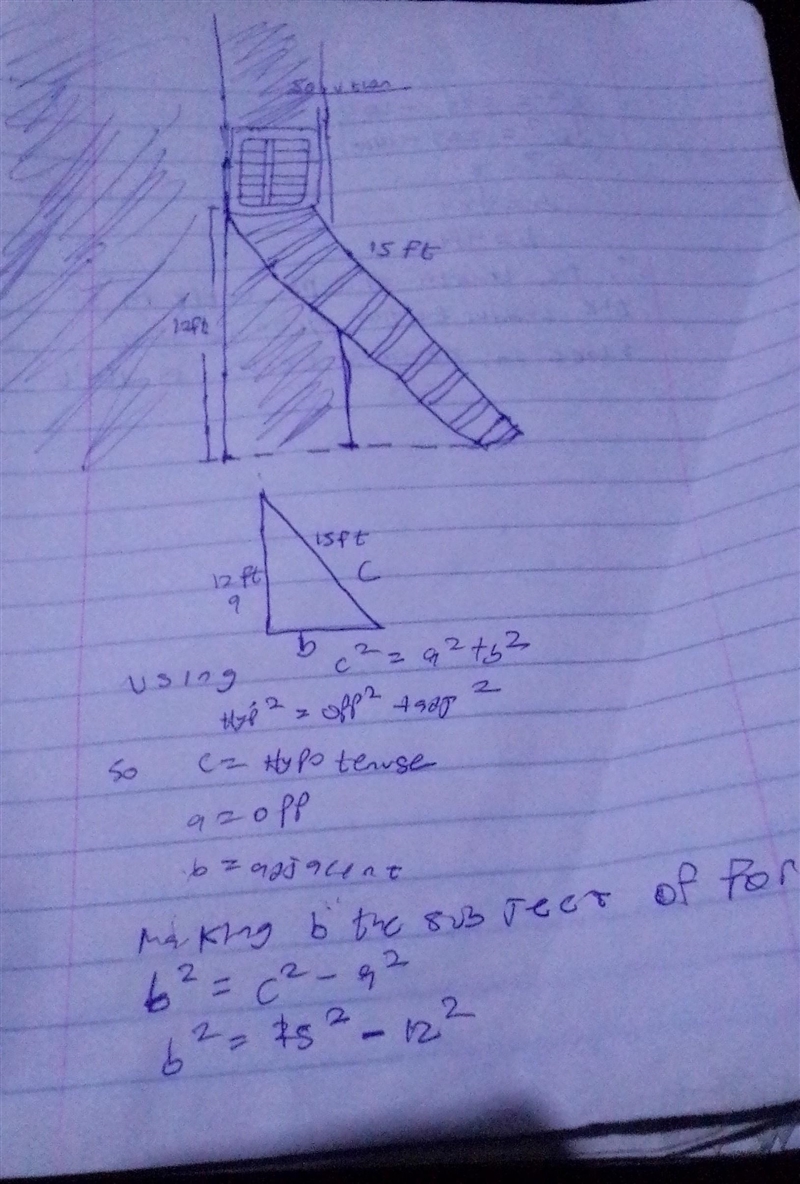 Solution
15 ft
12ft
15ft
12 ft
C
a
b
Using c² = a² + b²
Hyp² = opp² + adj²
So c = Hypotenuse
a = opp
b = adjacent
Making b the subject of for
b² = c² - a²
b² = 15² - 12²